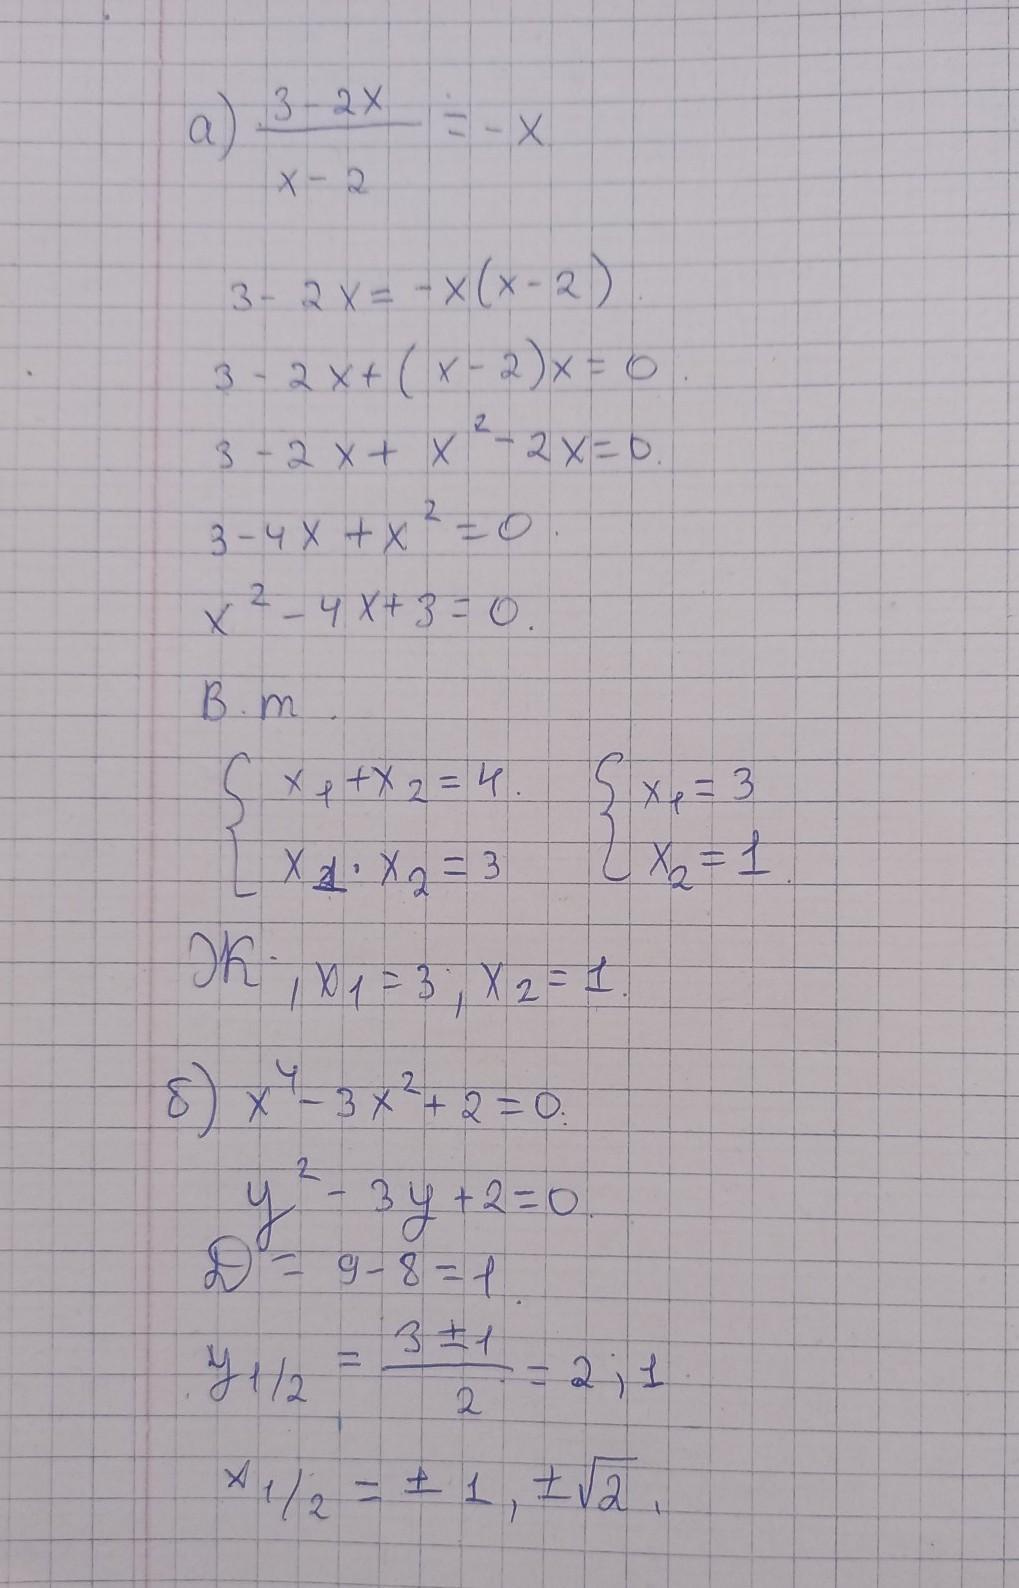 а) (3-2x)/(x-2) = -x
3-2x=-x(x-2)
3-2x+(x-2)x=0.
3-2x+x²-2x=0.
3-4x+x²=0.
x²-4x+3=0.
В.т.
{x₁+x₂=4. {x₁=3
{x₁·x₂=3 {x₂=1.
Ж: , x₁=3; x₂=1.
б) x⁴-3x²+2=0.
y²-3y+2=0.
D=9-8=1.
y₁/₂ = (3±1)/2 = 2; 1
x₁/₂ = ±1, ±√2.